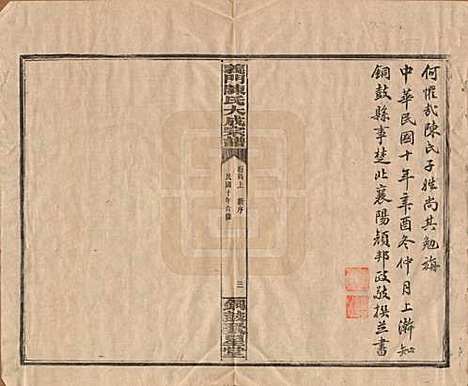 何惟哉陳氏子姓尚其勉旃
中華民國十年辛酉冬仲月上澣知
銅鼓縣事楚北襄陽顏邦政敬撰並書
義門陳氏大成宗譜
卷首上 新序
民國十年合修
三
銅鼓聚星堂